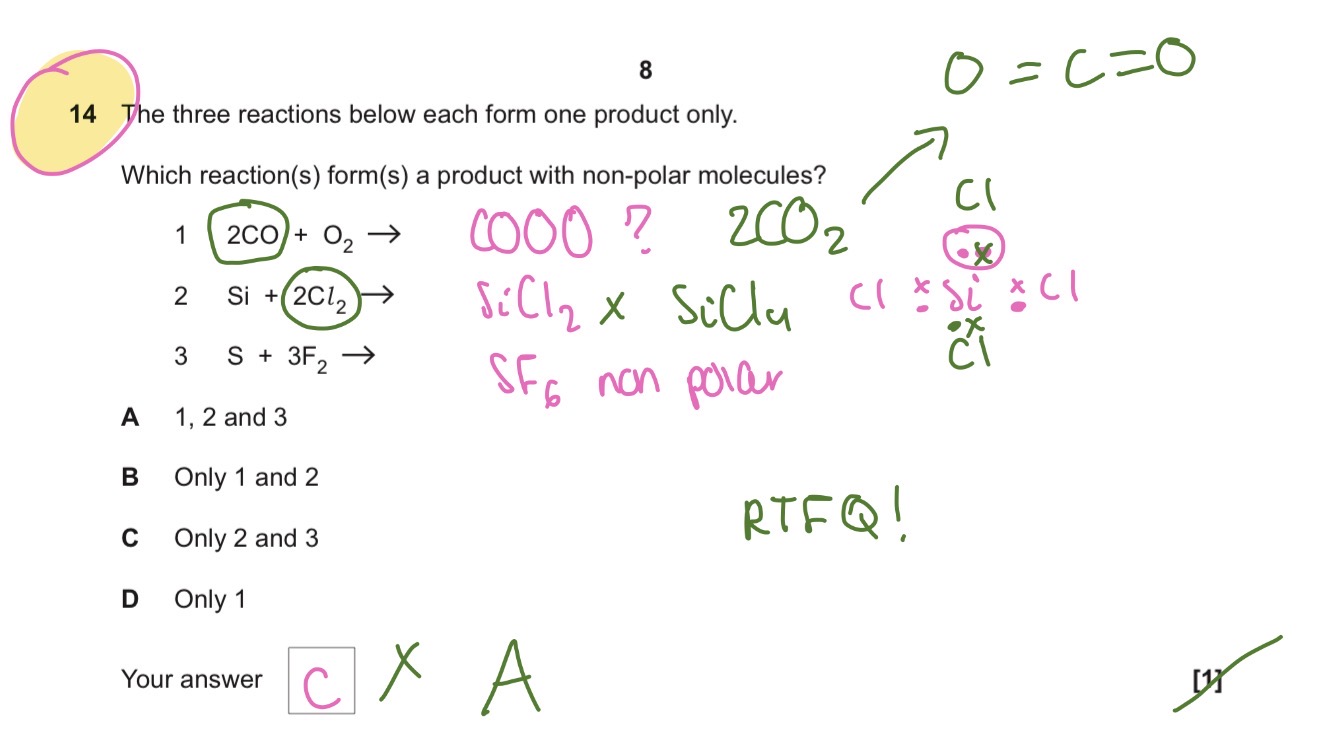 8
O = C = O
14 The three reactions below each form one product only.
Which reaction(s) form(s) a product with non-polar molecules?
1 2CO + O₂ → COOO ? 2CO₂
Cl
•x
2 Si + 2Cl₂ → SiCl₂ x SiCl₄ Cl x• Si x• Cl
•x
Cl
3 S + 3F₂ → SF₆ non polar
A 1, 2 and 3
B Only 1 and 2
RTFQ!
C Only 2 and 3
D Only 1
Your answer C X A [1]